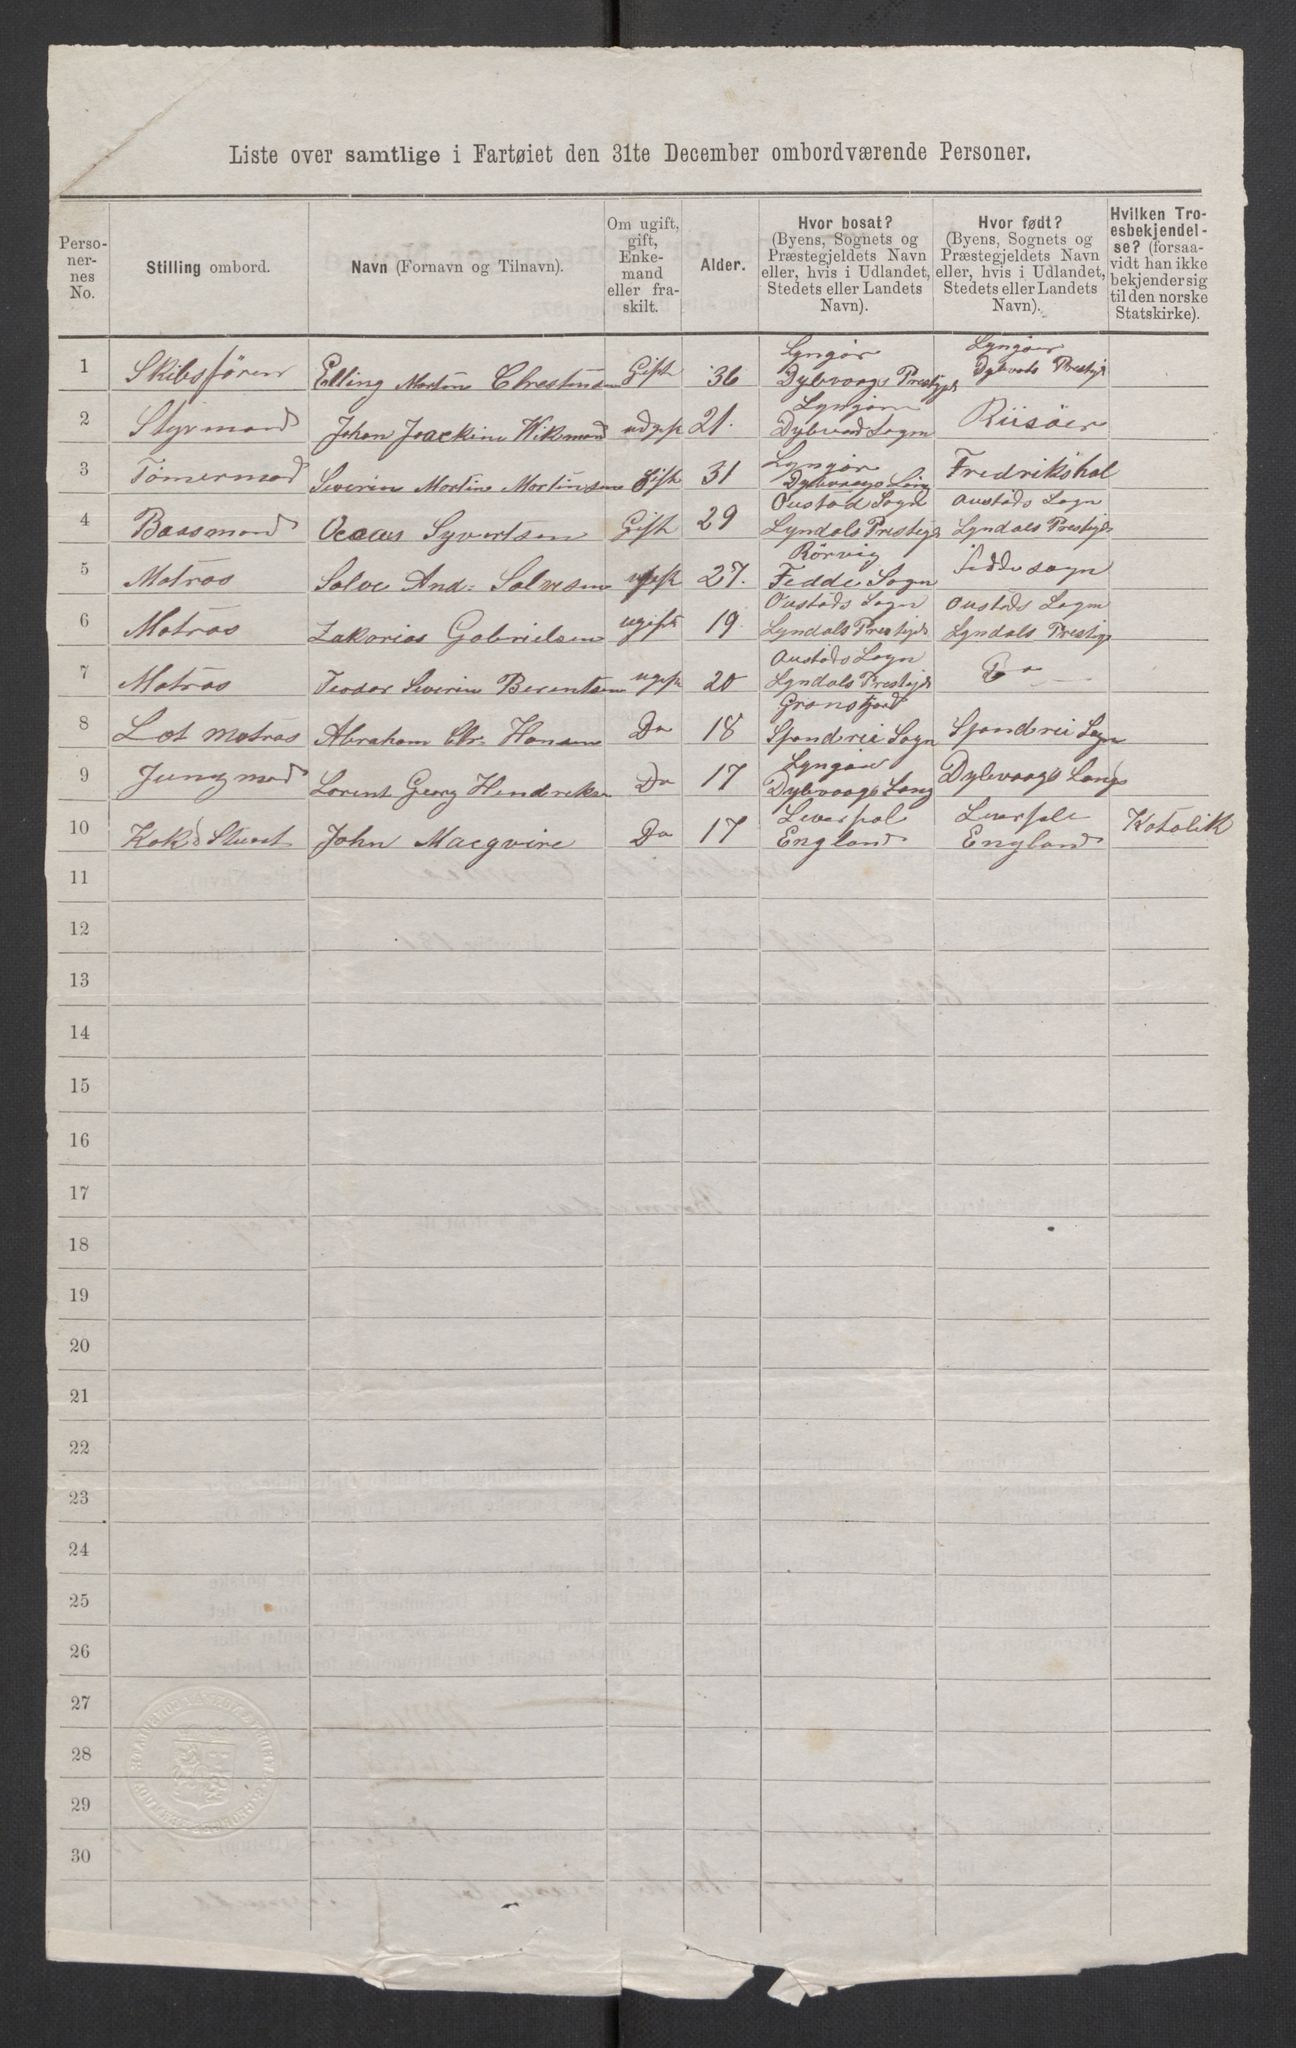 Liste over samtlige i Fartøiet den 31te December ombordværende Personer.
Personernes No. | Stilling ombord. | Navn (Fornavn og Tilnavn). | Om ugift, gift, Enkemand eller fraskilt. | Alder. | Hvor bosat? (Byens, Sognets og Præstegjeldets Navn eller, hvis i Udlandet, Stedets eller Landets Navn). | Hvor født? (Byens, Sognets og Præstegjeldets Navn eller, hvis i Udlandet, Stedets eller Landets Navn). | Hvilken Troesbekjendelse? (forsaavidt han ikke bekjender sig til den norske Statskirke).
1 | Skibsfören | Elling Morten Chrestensen | Gift | 36 | Lyngör Dybvaags Prestgjd | Lyngöer Prestgjd
2 | Styrmand | Johan Joackim Wikmand | 21. | Lyngör Sogn | Riisöer
3 | Tömermad | Severin Martin Martinsen | Gift | 31 | Lyngör Dybvaags | Fredrikshal
4 | Baasmand | Syvertsen | Gift | 29 | Oustad Sogn Lyndals Prestgjd | Austads Sogn Lyndals Prestgjd
5 | Matras | Salve And: Salvesen | ugift | 27. | Rörvig Fedde Sogn | Fedde sogn
6 | Matras | Zakarias Gabrielsen | ugift | 19 | Oustads Sogn Lyndals Prestgjd | Oustads Sogn Lyndals Prestgj
7 | Matras | Teodor Severin Berentsen | ugift | 20 | Austads Sogn Lyndals Prestgjd | Do
8 | Let matras | Abraham Chr. Hansen | Do | 18 | Gronsfjord Spondrei Sogn | Spondrei Sogn
9 | Jungmad | Lorent Georg Hendriksen | Do | 17 | Lyngör Dybvaags Sang | Dybvaags Sang
10 | Kok & Stuert | John Macgvire | Do | 17 | Leverpol England | Leverpole England | Katolik
11
12
13
14
15
16
17
18
19
20
21
22
23
24
25
26
27
28
29
30